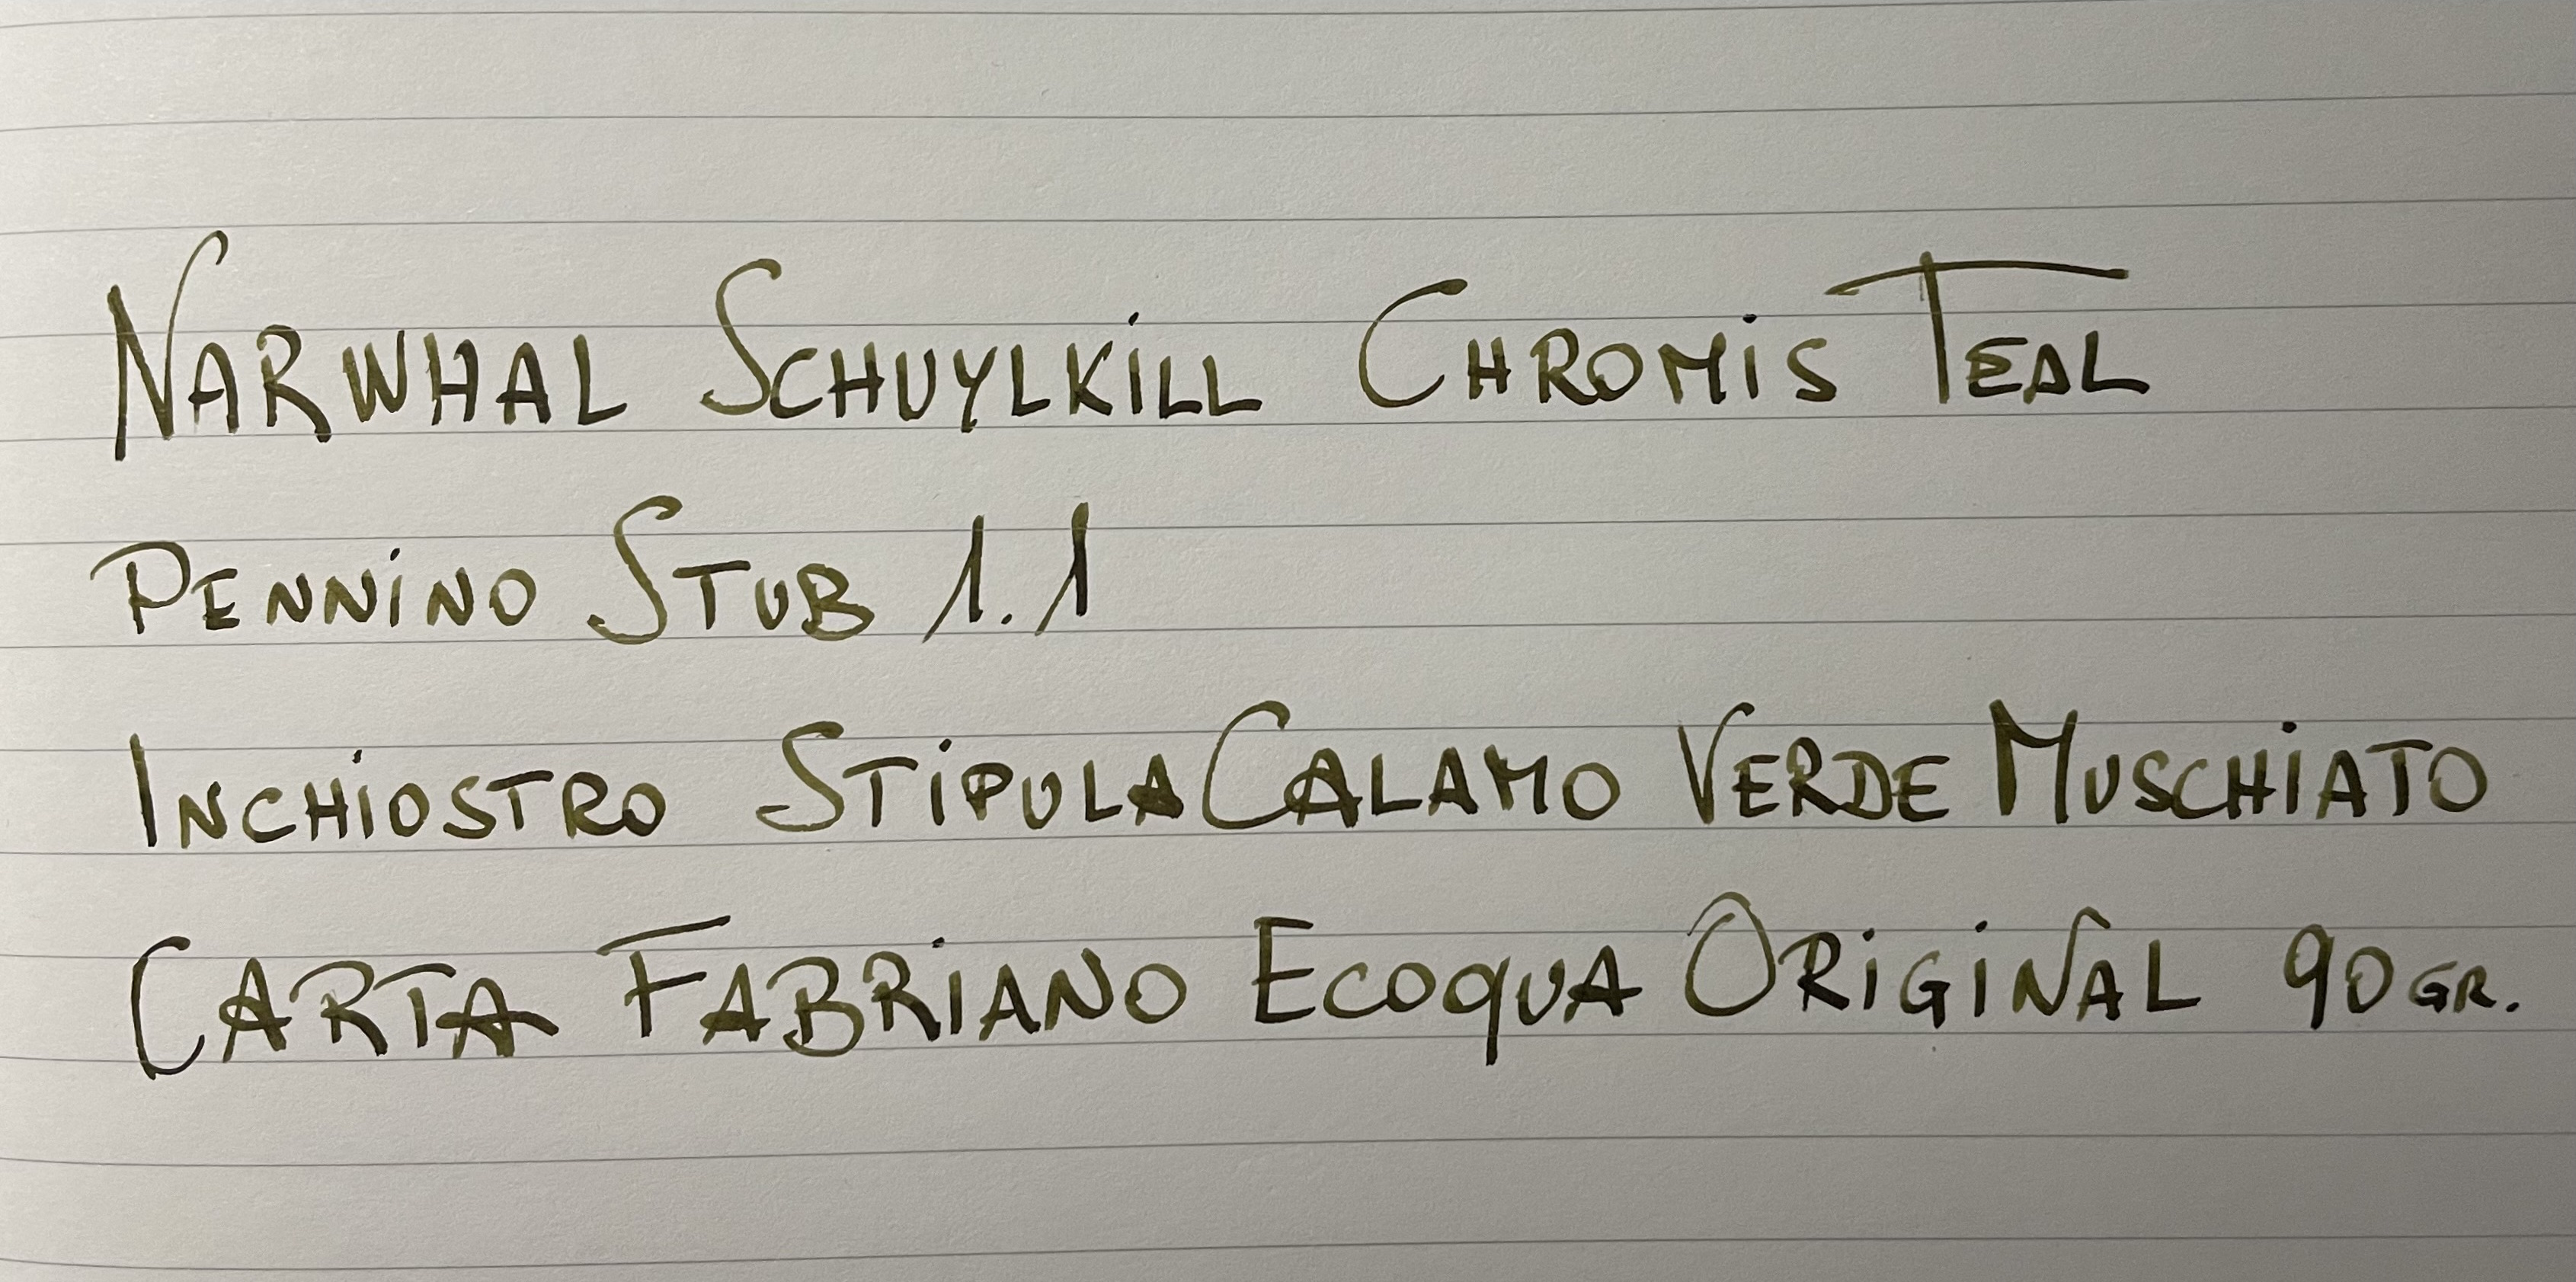 Narwhal Schuylkill Chromis Teal
Pennino Stub 1.1
Inchiostro Stipula Calamo Verde Muschiato
Carta Fabriano Ecoqua Original 90 gr.